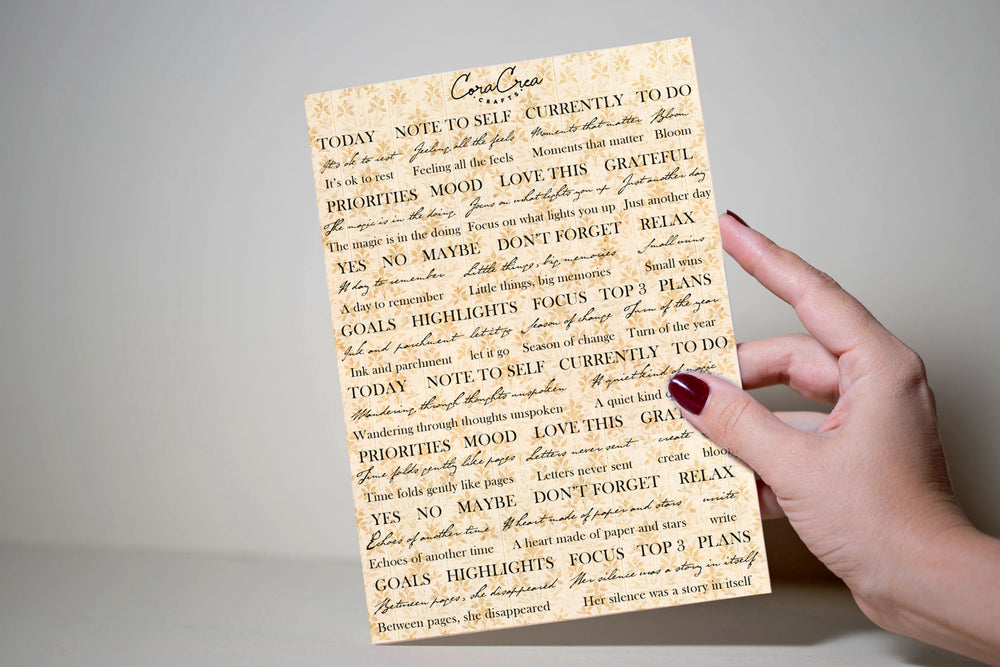 CoraCrea
CRAFTS
TODAY NOTE TO SELF CURRENTLY TO DO
It's ok to rest Feeling all the feels Moments that matter Bloom
It's ok to rest Feeling all the feels Moments that matter Bloom
PRIORITIES MOOD LOVE THIS GRATEFUL
The magic is in the doing Focus on what lights you up Just another day
The magic is in the doing Focus on what lights you up Just another day
YES NO MAYBE DON'T FORGET RELAX
A day to remember Little things, big memories Small wins
A day to remember Little things, big memories Small wins
GOALS HIGHLIGHTS FOCUS TOP 3 PLANS
Ink and parchment let it go Season of change Turn of the year
Ink and parchment let it go Season of change Turn of the year
TODAY NOTE TO SELF CURRENTLY TO DO
Wandering through thoughts unspoken A quiet kind of magic
Wandering through thoughts unspoken A quiet kind
PRIORITIES MOOD LOVE THIS
Time folds gently like pages Letters never sent create
Time folds gently like pages Letters never sent create
YES NO MAYBE DON'T FORGET RELAX
Echoes of another time A heart made of paper and stars write
Echoes of another time A heart made of paper and stars write
GOALS HIGHLIGHTS FOCUS TOP 3 PLANS
Between pages, she disappeared Her silence was a story in itself
Between pages, she disappeared Her silence was a story in itself